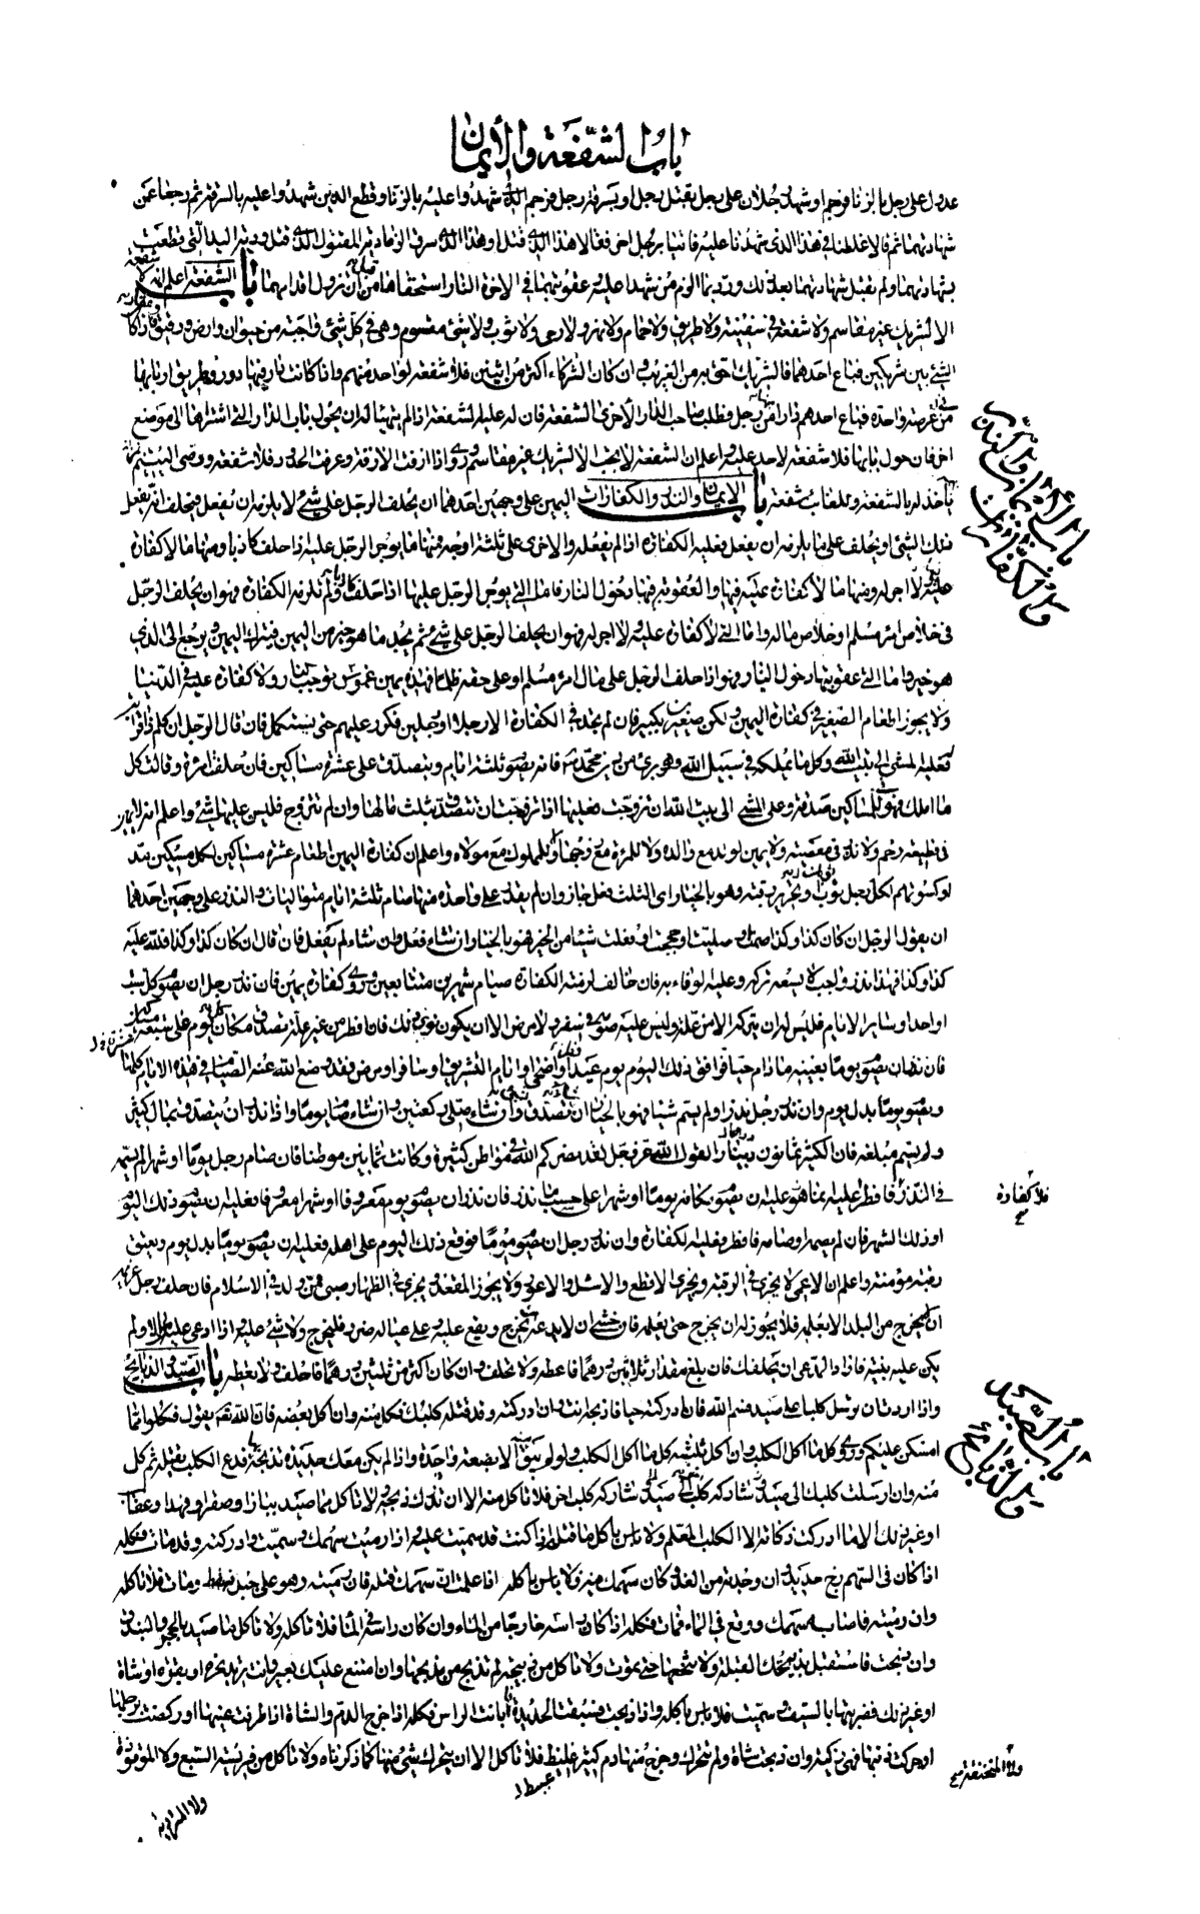 باب الشفعة والأيمان
عدول على رجل بالزنا فرجم او شهد رجلان على رجل بقتل رجل او بسرقة رجل فرجم الذي شهدوا عليه بالزنا وقطع الذين شهدوا عليه بالسرقة ثم رجعا عن
شهادتهما ثم قالا غلطنا في هذا الذي شهدنا عليه فاتيا برجل اخر فقالا هذا الذي قتل وهذا الذي سرق الزما دية المقتول الذي قتل ودية اليد التي قطعت
بشهادتهما ولم تقبل شهادتهما بعد ذلك وردّ بما الزم من شهدا عليه عقوبتهما في الاخرة النار استحقاها من قبل ان تزول اقدامهما باب الشفعة اعلم انه لا شفعة
الا لشريك غير مقاسم ولا شفعة في سفينة ولا طريق ولا حمام ولا نهر ولا رحى ولا ثوب ولا شئ مقسوم وهي في كل شئ واجبة من حيوان وارض ورقيق وعقار واذا كان
الشئ بين شريكين فباع احدهما فالشريك احق به من الغريب وان كان الشركاء اكثر من اثنين فلا شفعة لواحد منهم واذا كانت دار فيها دور وطريق اربابها
في عرصة واحدة فباع احدهم دارا من رجل فطلب صاحب الدار الأخرى الشفعة فان له عليه الشفعة اذا لم يتهيأ له ان يحول باب الدار التي اشتراها الى موضع
اخر فان حول بابها فلا شفعة لاحد عليه واعلم ان الشفعة لا يجب الا لشريك غير مقاسم وروي اذا ارفت الارفة وعرفت الحدود فلا شفعة ووصي اليتيم بمنزلة ابيه
يأخذ له بالشفعة وللغائب شفعة باب الايمان والنذر والكفارات اليمين على وجهين احدهما ان يحلف الرجل على شئ لا يلزمه ان يفعل فيحلف انه يفعل
ذلك الشئ او يحلف على ما يلزمه ان يفعل فعليه الكفارة اذا لم يفعله والاخرى على ثلثة اوجه فمنها ما يوجر الرجل عليه اذا حلف كاذبا ومنها ما لا كفارة
عليه ولا اجر له ومنها ما لا كفارة عليه فيها والعقوبة فيها دخول النار فاما التي يوجر الرجل عليها اذا حلف كاذبا ولم تلزمه الكفارة فهو ان يحلف الرجل
في خلاص امرء مسلم او خلاص ماله واما التي لا كفارة عليه ولا اجر له فهو ان يحلف الرجل على شئ ثم يجد ما هو خير من اليمين فيترك اليمين ويرجع الى الذي
هو خير واما التي عقوبتها دخول النار فهو اذا حلف الرجل على مال امرء مسلم او على حقه ظلما فهذه يمين غموس توجب النار ولا كفارة عليه في الدنيا
ولا يجوز اطعام الصغير في كفارة اليمين ولكن صغيرين بكبير فان لم يجد في الكفارة الا رجلا او رجلين فكرر عليهم حتى يستكمل فان قال الرجل ان كلم ذا قرابة
فعليه المشي الى بيت الله وكل ما يملكه في سبيل الله وهو برئ من دين محمد فانه يصوم ثلثة ايام ويتصدق على عشرة مساكين فان حلف امرأة وقالت كل
ما املك فهو للمساكين صدقة وعلى المشي الى بيت الله ان تزوجت فعليها اذا تزوجت ان تتصدق بثلث مالها وان لم تتزوج فليس عليها شئ واعلم انه لا يمين
في قطيعة رحم ولا نذر في معصية ولا يمين لولد مع والده ولا للمرءة مع زوجها ولا للمملوك مع مولاه واعلم ان كفارة اليمين اطعام عشرة مساكين لكل مسكين مد
او كسوتهم لكل رجل ثوب او تحرير رقبة وهو بالخيار اي الثلث فعل جاز وان لم يقدر على واحدة منها صام ثلثة ايام متواليات والنذر على وجهين احدهما
ان يقول الرجل ان كان كذا وكذا صمت او صليت او حججت او فعلت شيئا من الخير فهو بالخيار ان شاء فعل وان شاء لم يفعل فان قال ان كان كذا وكذا فلله عليه
كذا وكذا فهذا نذر واجب لا يسعه تركه وعليه الوفاء به فان خالف لزمته الكفارة صيام شهرين متتابعين وروي كفارة يمين فان نذر رجل ان يصوم كل سبت
او احد او سائر الايام فليس له ان يتركه الا من علة وليس عليه صوم في سفر ولا مرض الا ان يكون نوى ذلك فان افطر من غير علة تصدق مكان كل يوم على سبعة مساكين
عشرة خ ل
فان نذر ان يصوم يوما بعينه ما دام حيا فوافق ذلك اليوم يوم عيد فطر او اضحى او ايام التشريق او سافر او مرض فقد وضع الله عنه الصيام في هذه الايام كلها
ويصوم يوما بدل يوم وان نذر رجل نذرا ولم يسم شيئا فهو بالخيار ان شاء تصدق بشئ وان شاء صلى ركعتين وان شاء صام يوما واذا نذر ان يتصدق بمال كثير
ولم يسم مبلغه فان الكثير ثمانون دينارا لقول الله عز وجل لقد نصركم الله في مواطن كثيرة وكانت ثمانين موطنا فان صام رجل يوما او شهرا لم يسمه
في النذر فافطر عليه انما هو عليه ان يصوم مكانه يوما او شهرا على حسب ما نذر فان نذر ان يصوم يوما معروفا او شهرا معروفا فعليه ان يصوم ذلك اليوم
فلا كفارة
او ذلك الشهر فان لم يصمه او صامه فافطر فعليه الكفارة وان نذر رجل ان يصوم يوما فوقع ذلك اليوم على اهله فعليه ان يصوم يوما بدل يوم ويعتق
رقبة مؤمنة واعلم ان الاعمى لا يجزي في الرقبة ويجزي الاقطع والاشل والاعور ولا يجوز المقعد ويجزي في الظهار صبي ممن ولد في الاسلام فان حلف رجل غريمه
ان لا يخرج من البلد الا بعلمه فلا يجوز له ان يخرج حتى يعلمه فان خشي ان لا يدعه يخرج ويقع عليه وعلى عياله ضرر فليخرج ولا شئ عليه واذا ادعى عليك مالا ولم
يكن عليه بينة فاراد المدعي ان يحلفك فان بلغ مقدار ثلثين درهما فاعطه ولا تحلف وان كان اكثر من ثلثين درهما فاحلف ولا تعطه باب الصيد والذبايح
واذا اردت ان ترسل كلبا على صيد فسم الله فان ادركته حيا فاذبحه انت وان ادركته وقد قتله كلبك فكل منه وان اكل بعضه فان الله تعالى يقول فكلوا مما
امسكن عليكم وروي كل ما اكل الكلب وان اكل ثلثيه كل ما اكل الكلب ولو لم يبق منه الا بضعة واحدة واذا لم يكن معك حديدة تذبحه بها فدع الكلب يقتله ثم كل
منه وان ارسلت كلبك الى صيد وشاركه كلب اخر فلا تأكل منه الا ان تدرك ذبحه ولا تأكل مما صيد بباز او صقر او فهد او عقاب
او غير ذلك الا ما ادركت ذكاته الا الكلب المعلم ولا باس باكل ما قتل اذا كنت قد سميت عليه واذا رميت سهمك وسميت وادركته وقد مات فكله
اذا كان في السهم زج حديد وان وجدته من الغد وكان سهمك فيه فلا باس باكله اذا علمت ان سهمك قتله فان رميته وهو على جبل فسقط ومات فلا تأكله
وان رميته فاصابه سهمك ووقع في الماء فمات فكله اذا كان راسه خارجا من الماء وان كان راسه في الماء فلا تأكله ولا تأكل ما صيد بالحجر والبندق
وان ذبحت فاستقبل بذبيحتك القبلة ولا تنخعها حتى تموت ولا تأكل من ذبيحة لم تذبح من مذبحها وان امتنع عليك بعير وانت تريد نحره او بقرة او شاة
او غير ذلك فضربتها بالسيف وسميت فلا باس باكله واذا ذبحت فسبقت الحديدة فابانت الراس فكله اذا خرج الدم والشاة اذا طرفت عينها او ركضت برجلها
او حركت ذنبها فهي ذكية وان ذبحت شاة ولم تتحرك وخرج منها دم كثير غليظ فلا تأكل الا ان يتحرك شئ منها كما ذكرناه ولا تأكل من فريسة السبع ولا الموقوذة
ولا المنخنقة
ولا المتردية
عبيط خ ل
باب الأيمان والنذر والكفارات
باب الصيد والذبائح